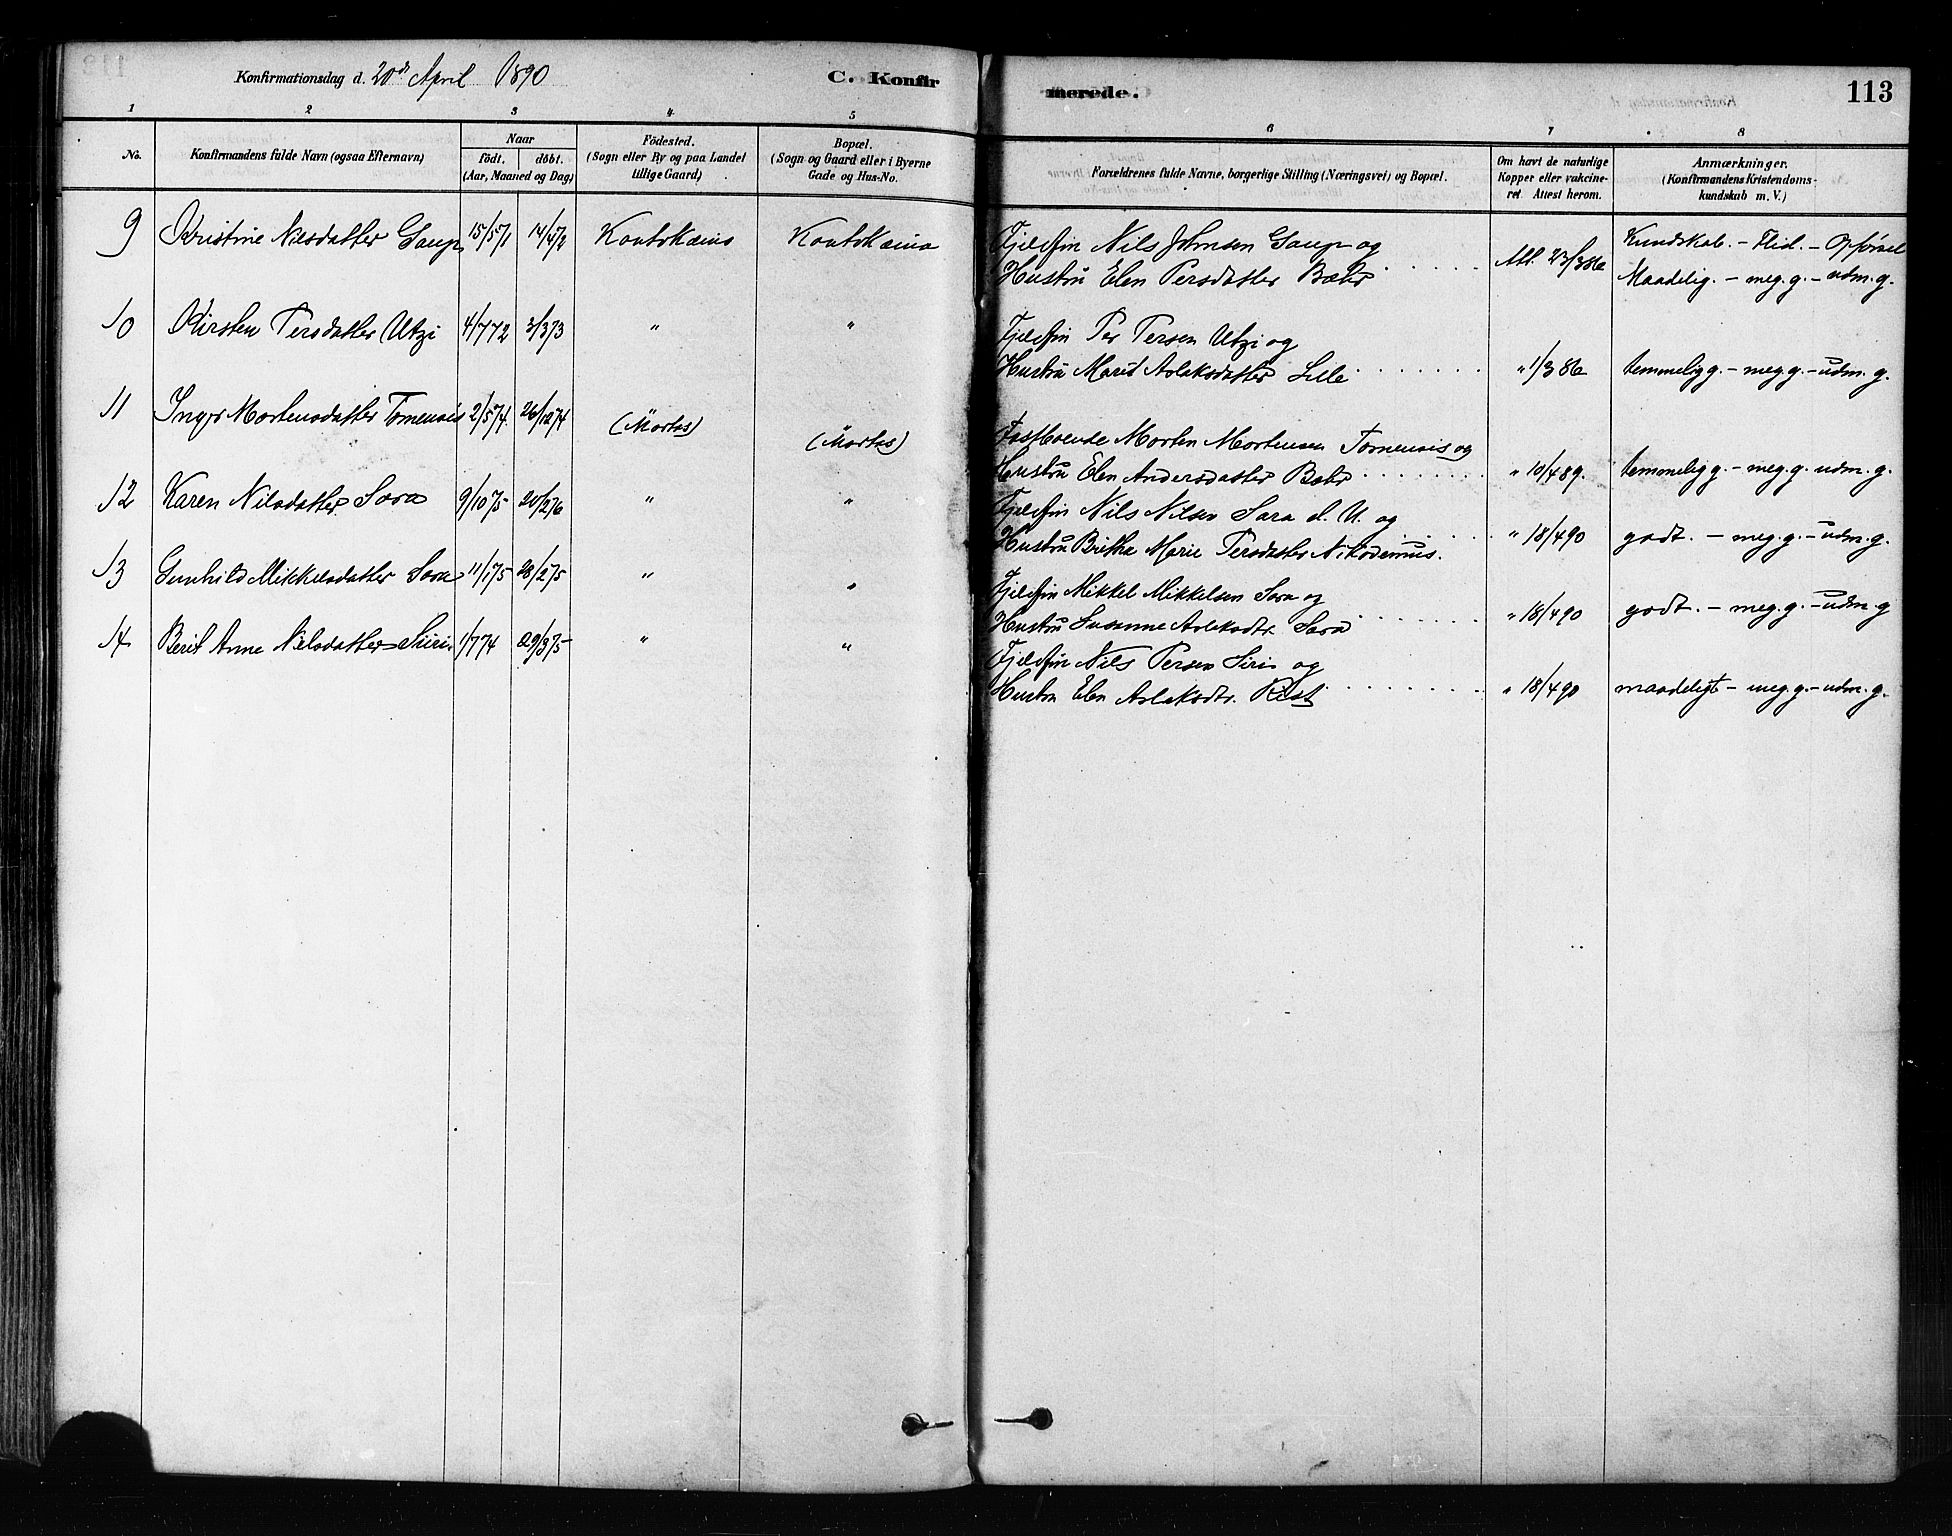 Konfirmationsdag d. 20de April 1890
C. Konfirmerede.
113
1 2 3 4 5 6 7 8
No.
Konfirmandens fulde Navn (ogsaa Efternavn)
Naar
födt. döbt.
(Aar, Maaned og Dag)
Födested.
(Sogn eller By og paa Landet
tillige Gaard)
Bopæl.
(Sogn og Gaard eller i Byerne
Gade og Hus-No.
Forældrenes fulde Navne, borgerlige Stilling (Næringsvei) og Bopæl.
Om havt de naturlige
Kopper eller vakcine-
ret. Attest herom.
Anmærkninger.
(Konfirmandens Kristendoms-
kundskab m. V.)
9 Kristine Nilsdatter Gaup 15/5 71 14/4 72 Koutokæino Koutokæino Fjeldfin Nils Johnsen Gaup og Att. 23/3 86 Kundskab. - Flid. - Opförsel
Hustru Elen Persdatter Bæhr Maadelig. - meg. g. - udm. g.
10 Kirsten Persdatter Utzi 4/7 72 3/3 73 " " Fjeldfin Per Persen Utzi og
Hustru Marit Aslaksdatter Lille " 1/3 86 temmelig g. - meg. g. - udm. g.
11 Inger Mortensdatter Tornensis 2/5 74. 26/12 74 (Mortas) (Mortas) Fastboende Morten Mortensen Tornensis og
Hustru Elen Andersdatter Bæhr " 10/4 89. temmelig g. - meg. g. udm. g.
12 Karen Nilsdatter Sara 9/10 75 20/2 76 " " Fjeldfin Nils Nilsen Sara d. U. og
Hustru Brithe Marie Persdatter Nikodemus. " 18/4 90 godt. - meg. g. - udm. g.
13 Gunhild Mikkelsdatter Sara 11/1 75 28/2 75 " " Fjeldfin Mikkel Mikkelsen Sara og
Hustru Susanne Aslaksdtr. Sara " 18/4 90 godt. - meg. g. - udm. g
14 Berit Anne Nilsdatter Siiri 1/7 74 29/3 75 " " Fjeldfin Nils Persen Siri og
Hustru Elen Aslaksdtr. Rist " 18/4 90 maadeligt - meg. g. - udm. g.